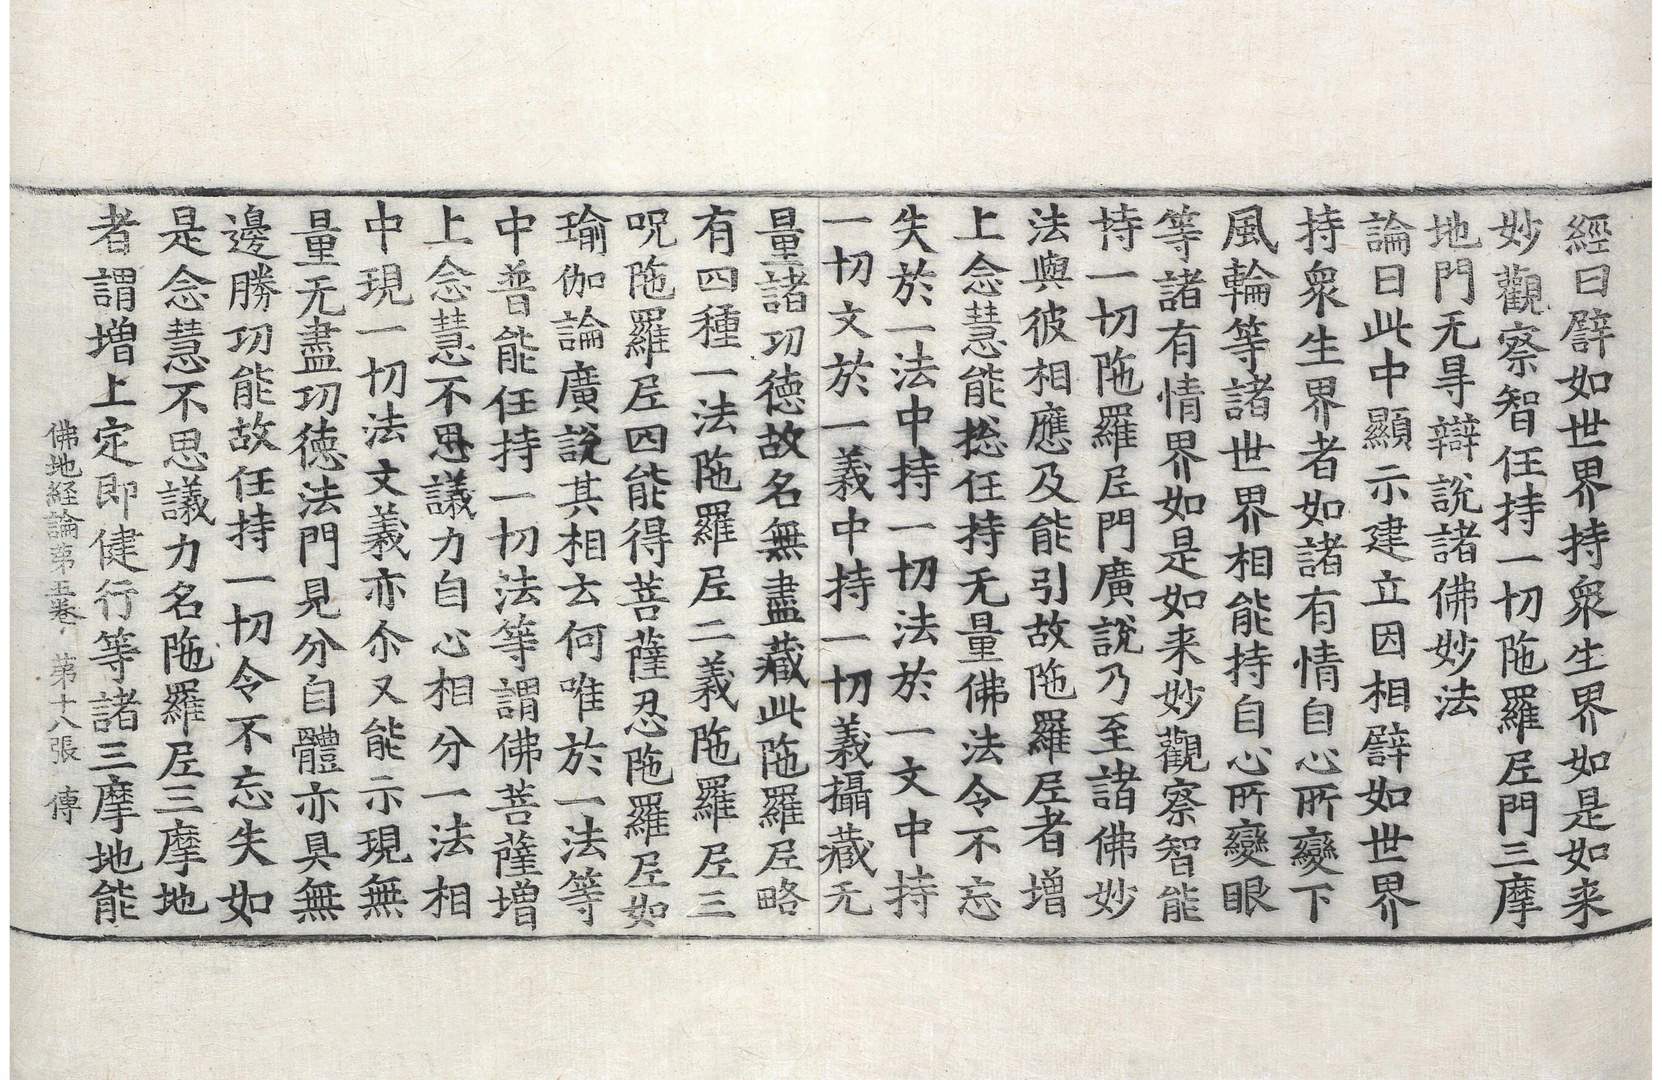 經曰譬如世界持衆生界如是如来
妙觀察智任持一切陁羅尼門三摩
地門无㝵辯說諸佛妙法
論曰此中顯示建立因相譬如世界
持衆生界者如諸有情自心所變下
風輪等諸世界相能持自心所變眼
等諸有情界如是如来妙觀察智能
持一切陁羅尼門廣說乃至諸佛妙
法與彼相應及能引故陁羅尼者增
上念慧能捴任持无量佛法令不忘
失於一法中持一切法於一文中持
一切文於一義中持一切義攝藏无
量諸功德故名無盡藏此陁羅尼略
有四種一法陁羅尼二義陁羅尼三
呪陁羅尼四能得菩薩忍陁羅尼如
瑜伽論廣說其相云何唯於一法等
中普能任持一切法等謂佛菩薩增
上念慧不思議力自心相分一法相
中現一切法文義亦尒又能示現無
量无盡功德法門見分自體亦具無
邊勝功能故任持一切令不忘失如
是念慧不思議力名陁羅尼三摩地
者謂增上定即健行等諸三摩地能
佛地経論第五卷 第十八張 傳